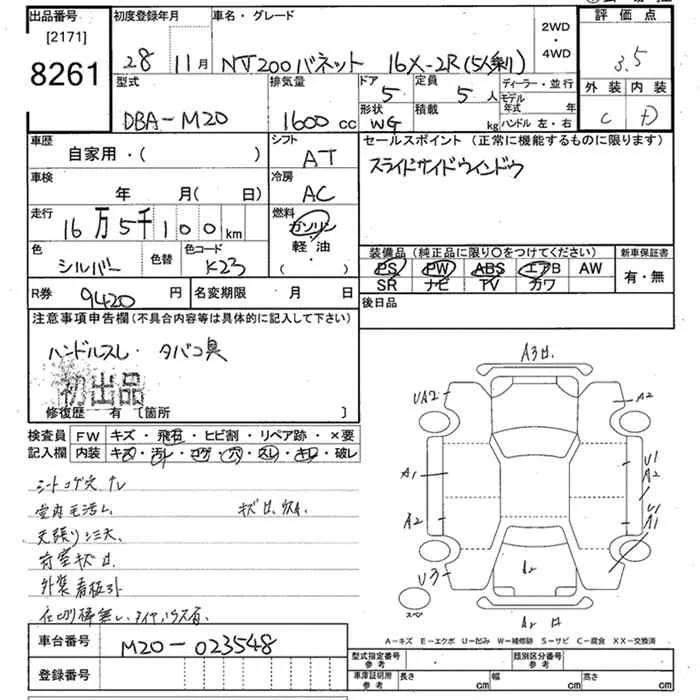 出品番号 初度登録年月 車名・グレード 評価点
[2171] 28 11月 NV200バネット 16X-2R(5人乗り) 2WD・4WD 3.5
8261 型式 排気量 ドア 5 定員 5人 ディーラー・並行 外装 内装
DBA-M20 1600cc 形状 WG 積載 kg モデル年式 年 C D
ハンドル 左・右
車歴 シフト セールスポイント (正常に機能するものに限ります)
自家用・( ) AT スライドサイドウィンドウ
車検 冷房
年 月(日) AC
走行 燃料
16万5千100km ガソリン・軽油・( )
色 色替 色コード 装備品 (純正品に限り〇をつけてください) 新車保証書
シルバー K23 PS PW ABS エアB AW 有・無
SR ナビ TV カワ
R券 9420円 名変期限 月 日 後日品
注意事項申告欄(不具合内容等は具体的に記入して下さい)
ハンドルスレ・タバコ臭
初出品
修復歴 有 〔箇所 〕
検査員 FW キズ・飛石・ヒビ割・リペア跡・×要
記入欄 内装 キズ・汚レ・コゲ・穴・スレ・キレ・破レ
シートコゲ穴
天張りシミ大
荷室キズ
外装看板
A3
UA2
A2
A1
U1
A2
A2
U1
A1
U3
A2
スペア
A2
A-キズ E-エクボ U-凹み W-補修跡 S-サビ C-腐食 XX-交換済
車台番号 M20-023548
登録番号
型式指定番号 参考 類別区分番号 参考
車庫証明所 参考 長さ cm 幅 cm 高さ cm